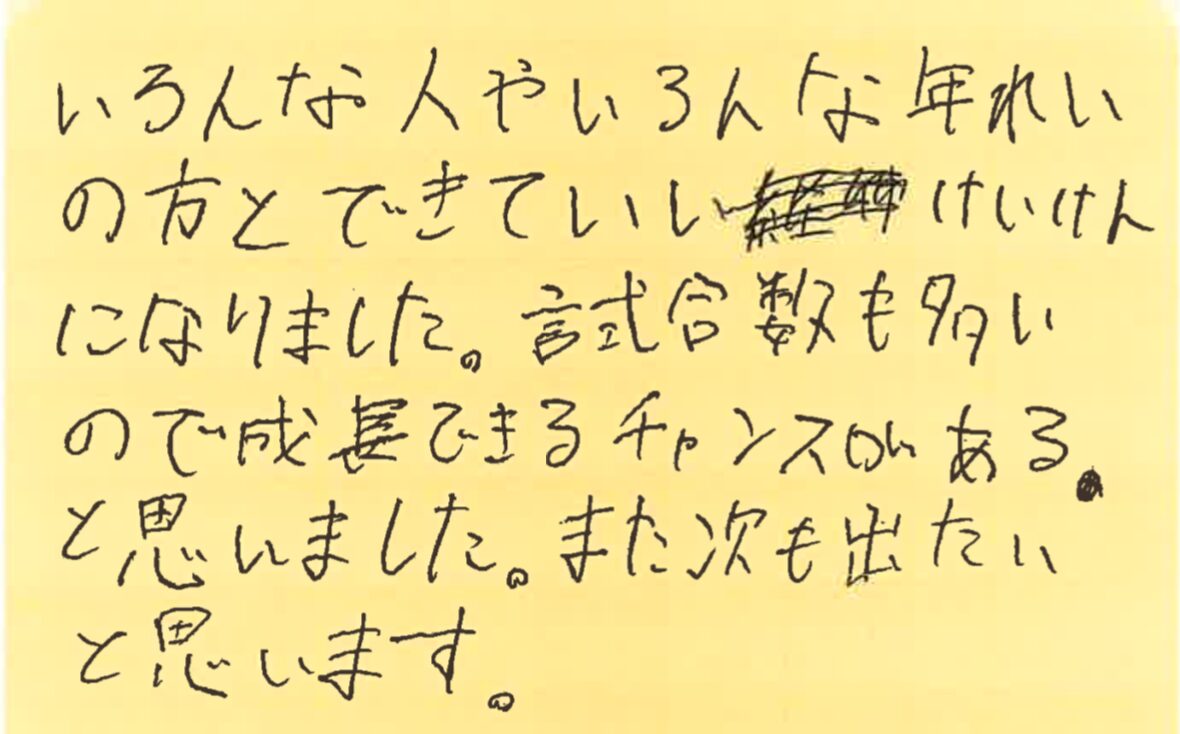 いろんな人やいろんな年れい
の方とできていいけいけん
になりました。試合数も多い
ので成長できるチャンスがある
と思いました。また次も出たい
と思います。